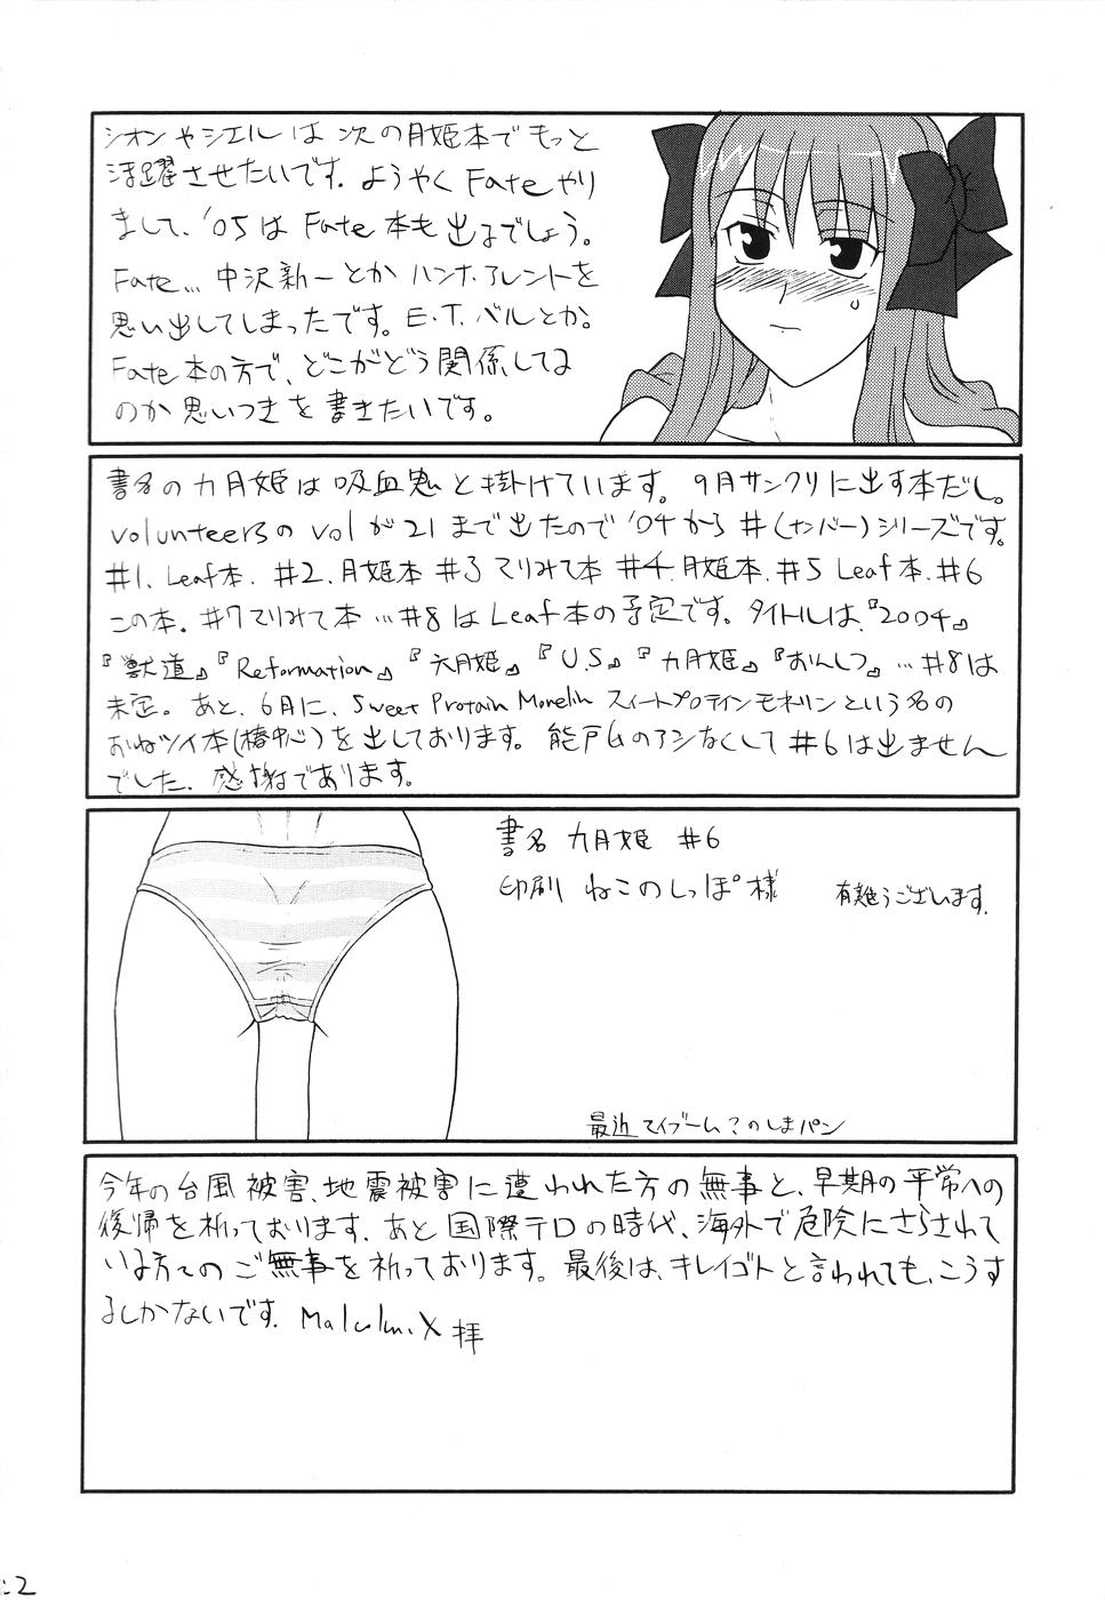 シオンやシエルは次の月姫本でもっと
活躍させたいです。ようやくFateやり
まして、'05はFate本も出るでしょう。
Fate…中沢新一とかハンナ・アレントを
思い出してしまったです。E.T.ベルとか。
Fate本の方で、どこがどう関係してる
のか思いつきを書きたいです。
書名の九月姫は吸血鬼と掛けています。9月サンクリに出す本だし。
volunteersのvolが21まで出たので'04から#(ナンバー)シリーズです。
#1.Leaf本.#2.月姫本#3マリみて本#4.月姫本.#5Leaf本.#6
この本.#7マリみて本…#8はLeaf本の予定です。タイトルは、『2004』
『獣道』『Reformation』『六月姫』『U.S』『九月姫』『おんしつ』…#8は
未定。あと、6月に、Sweet Protain Monelinスィートプロテインモネリンという名の
おねツイ本(椿中心)を出しております。能戸Gのアシなくして#6は出ません
でした。感謝であります。
書名 九月姫 #6
印刷 ねこのしっぽ様 有難うございます。
最近マイブーム?のしまパン
今年の台風被害、地震被害に遭われた方の無事と、早期の平常への
復帰を祈っております。あと国際テロの時代、海外で危険にさらされて
いる方々のご無事を祈っております。最後は、キレイゴトと言われても、こうす
るしかないです。Malcolm.X 拝
2